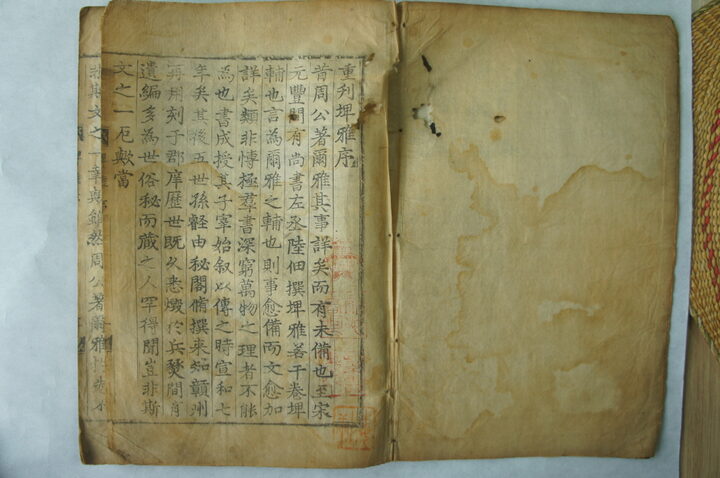 重刋埤雅序
昔周公著爾雅其事詳矣而有未備也至宋
元豐間有尚書左丞陸佃撰埤雅若干卷埤
輔也言為爾雅之輔也則事愈備而文愈加
詳矣類非愽極羣書深窮萬物之理者不能
為也書成授其子宰始叙以傳之時宣和七
年矣其後五世孫壑由秘閣脩撰来知贛州
再用刻于郡庠歴世既久悉燬於兵燹間有
遺編多為世俗秘而蔵之人罕得聞豈非斯
文之一厄歟當
非斯文之一幸與鎮然周公著爾雅